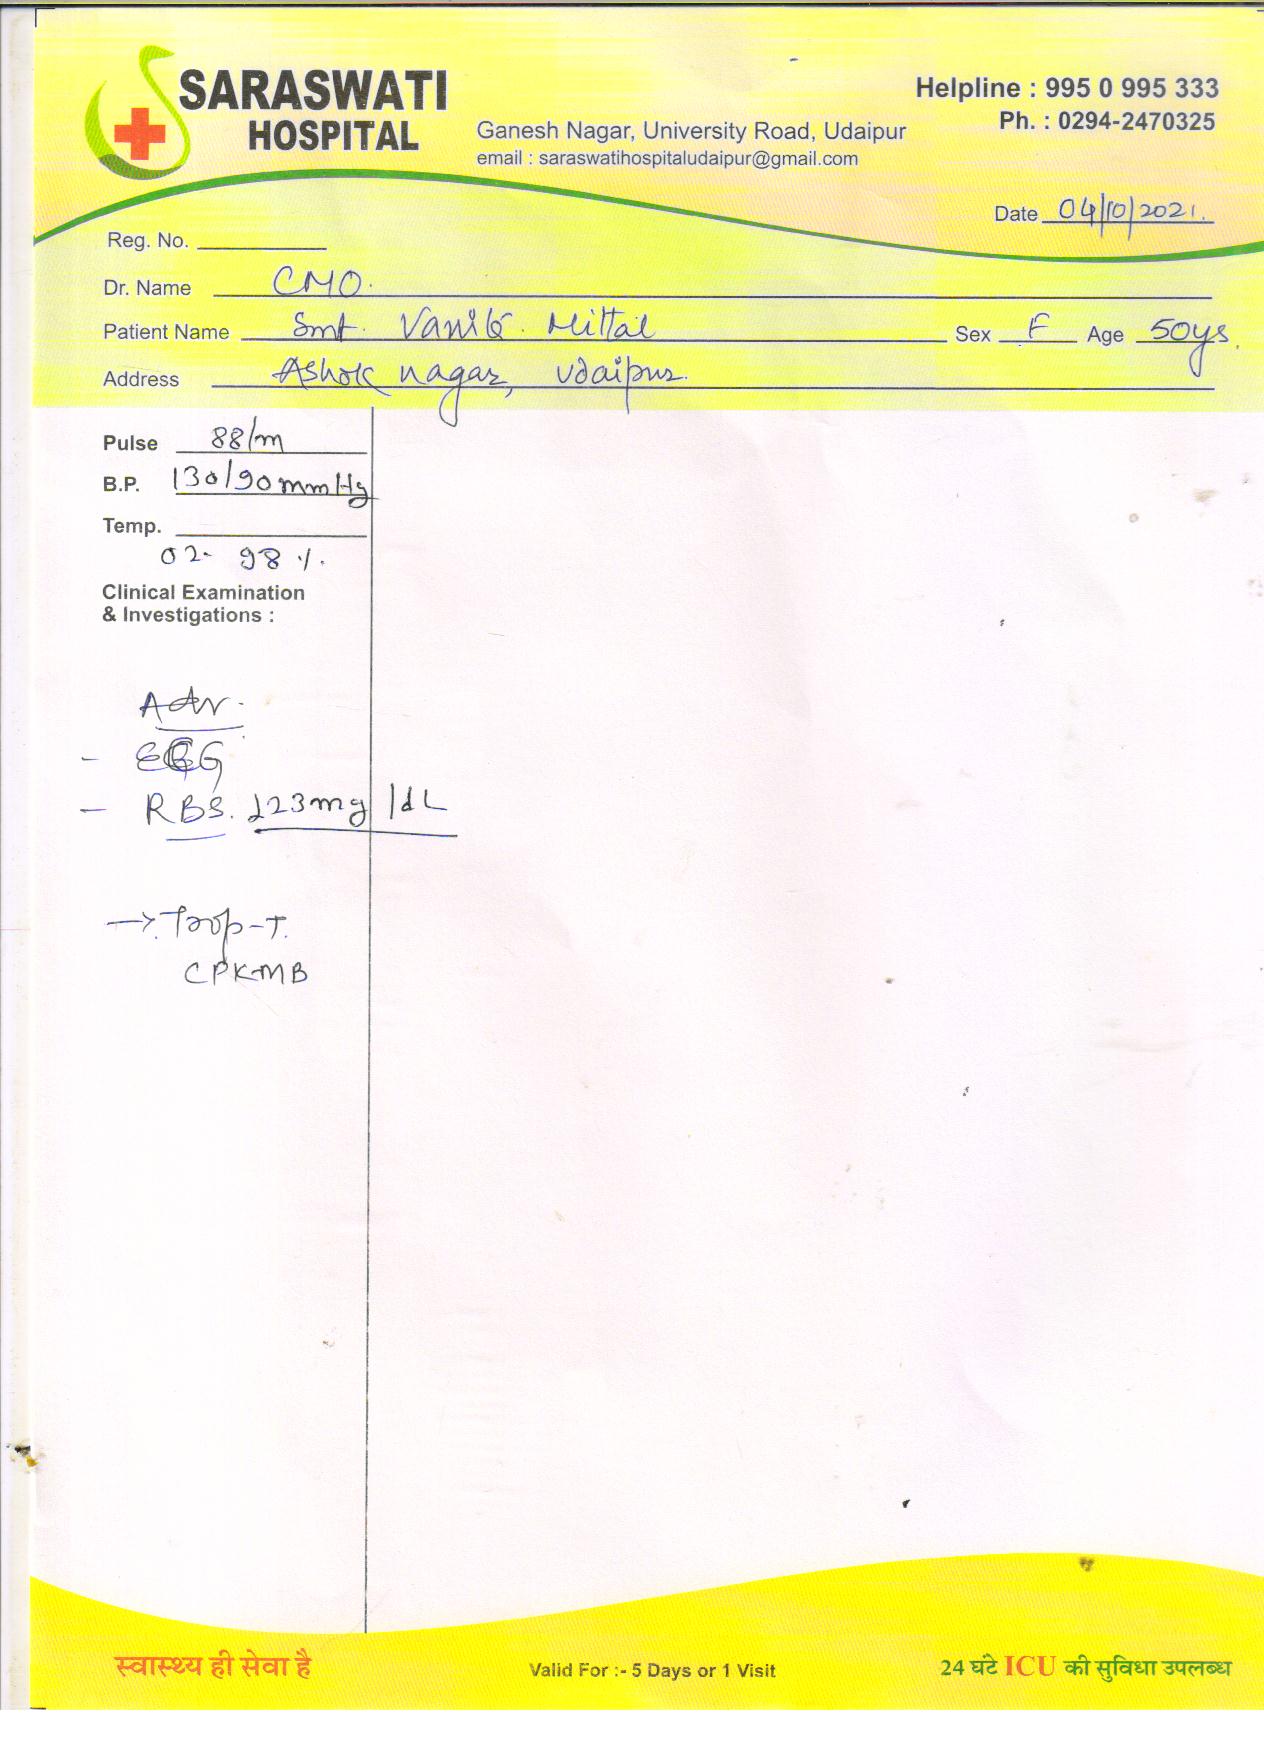 SARASWATI
HOSPITAL
Ganesh Nagar, University Road, Udaipur
email : saraswatihospitaludaipur@gmail.com
Helpline : 995 0 995 333
Ph. : 0294-2470325
Date 04/10/2021.
Reg. No.
Dr. Name CMO.
Patient Name Smt. Mittal Sex F Age 50ys.
Address Ashok nagar, Udaipur.
Pulse 88/m
B.P. 130/90 mmHg
Temp.
O2- 98 %.
Clinical Examination
& Investigations :
Adv.
- ECG
- RBS. 123mg/dL
→. Trop-T.
CPKMB
स्वास्थ्य ही सेवा है
Valid For :- 5 Days or 1 Visit
24 घंटे ICU की सुविधा उपलब्ध